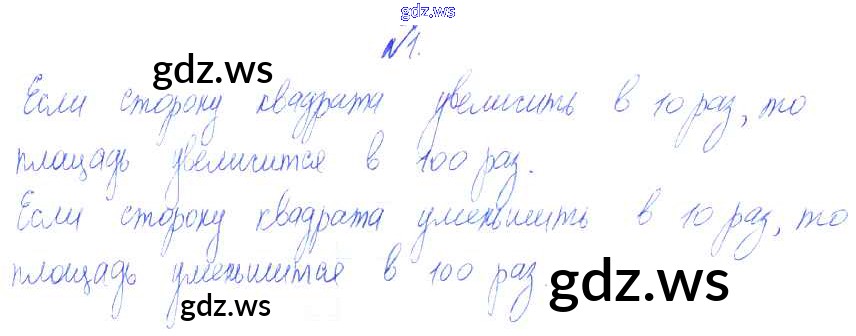 gdz.ws
№1.
gdz.ws
Если сторону квадрата увеличить в 10 раз, то
площадь увеличится в 100 раз.
Если сторону квадрата уменьшить в 10 раз, то
площадь уменьшится в 100 раз.
gdz.ws
gdz.ws